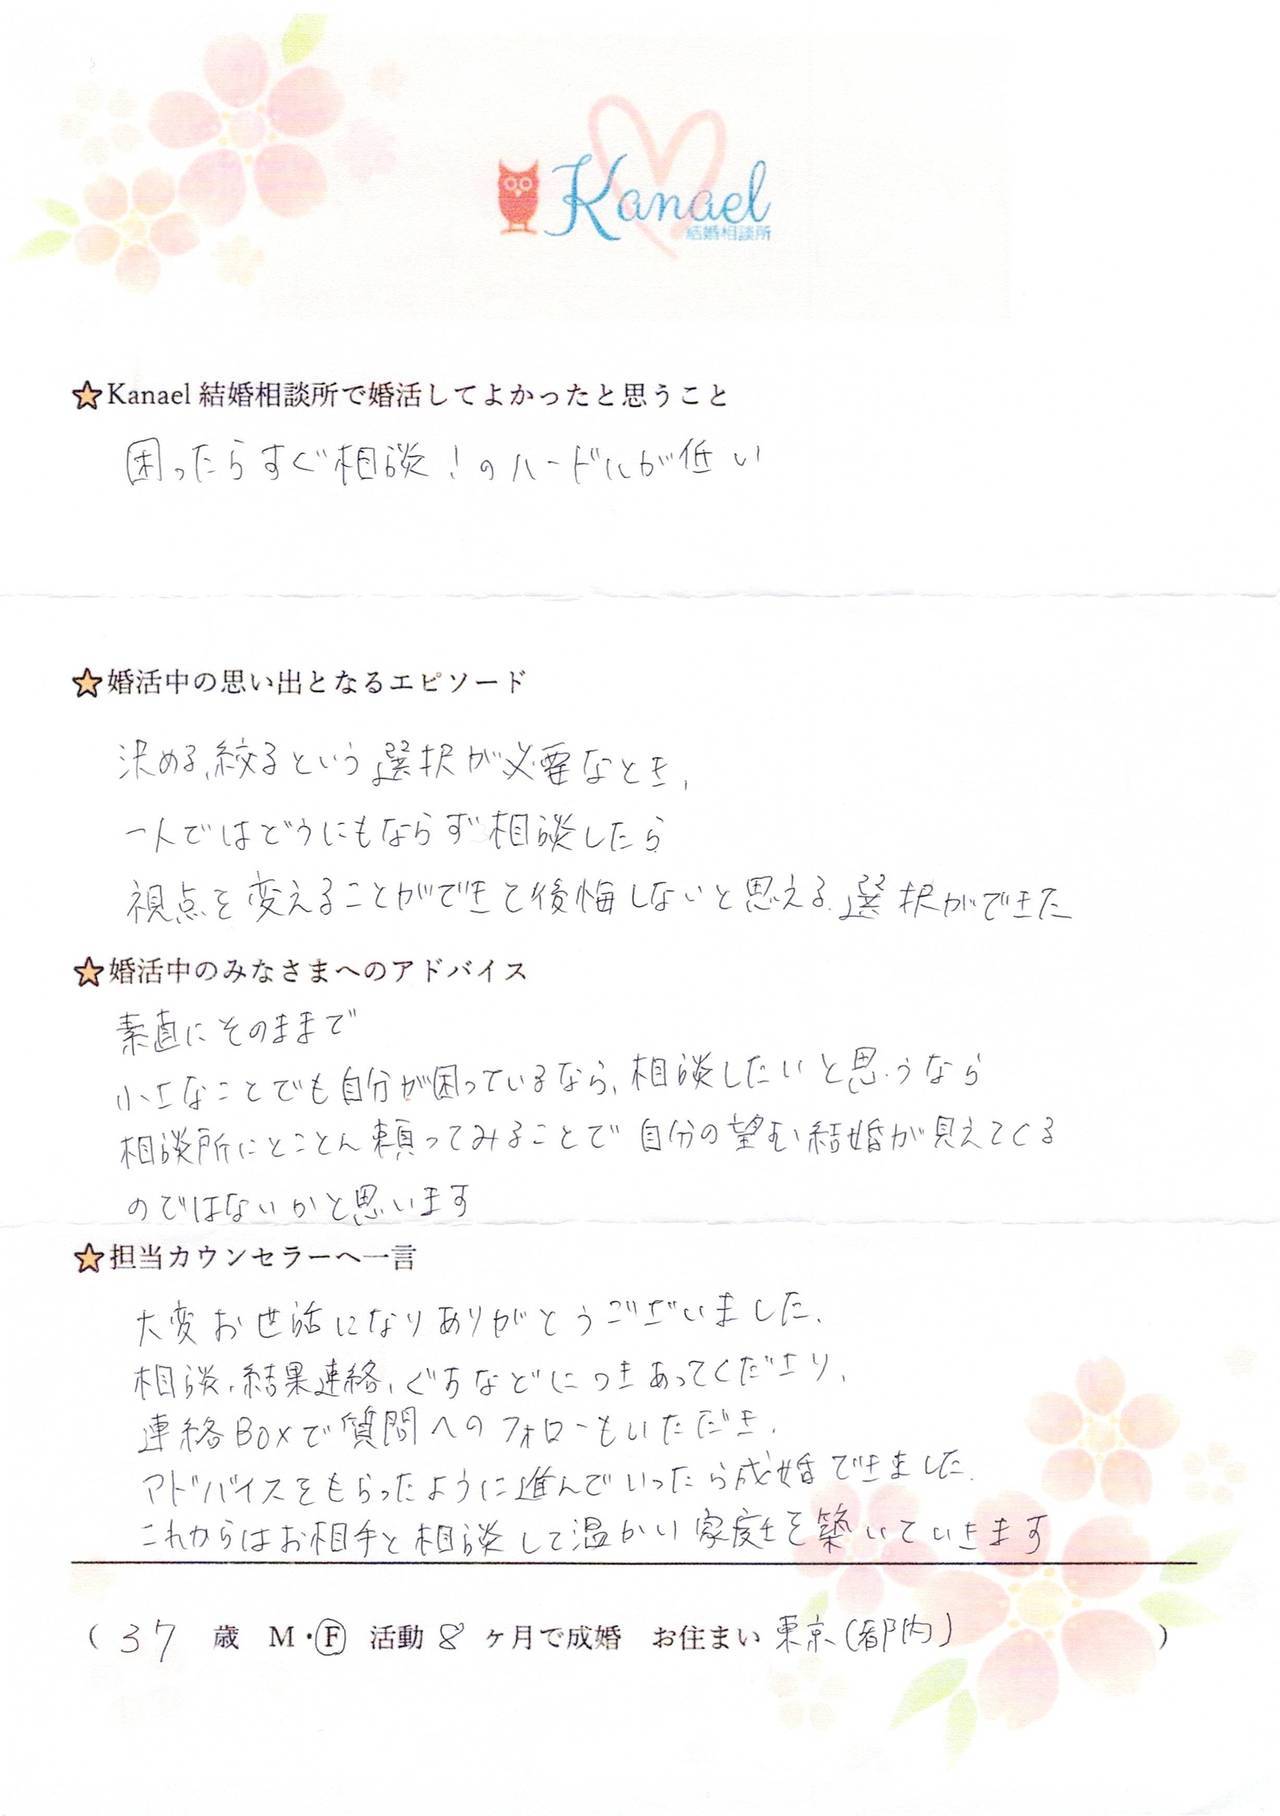 Kanael
結婚相談所
Kanael 結婚相談所で婚活してよかったと思うこと
困ったらすぐ相談！のハードルが低い
婚活中の思い出となるエピソード
決める、絞るという選択が必要なとき、
一人ではどうにもならず相談したら
視点を変えることができて後悔しないと思える選択ができた
婚活中のみなさまへのアドバイス
素直にそのままで
小さなことでも自分が困っているなら、相談したいと思うなら
相談所にとことん頼ってみることで自分の望む結婚が見えてくる
のではないかと思います
担当カウンセラーへ一言
大変お世話になりありがとうございました。
相談、結果連絡、ぐちなどにつきあってくださり、
連絡Boxで質問へのフォローもいただき、
アドバイスをもらったように進んでいったら成婚できました。
これからはお相手と相談して温かい家庭を築いていきます
( 37 歳 M・F 活動 8 ヶ月で成婚 お住まい 東京(都内) )